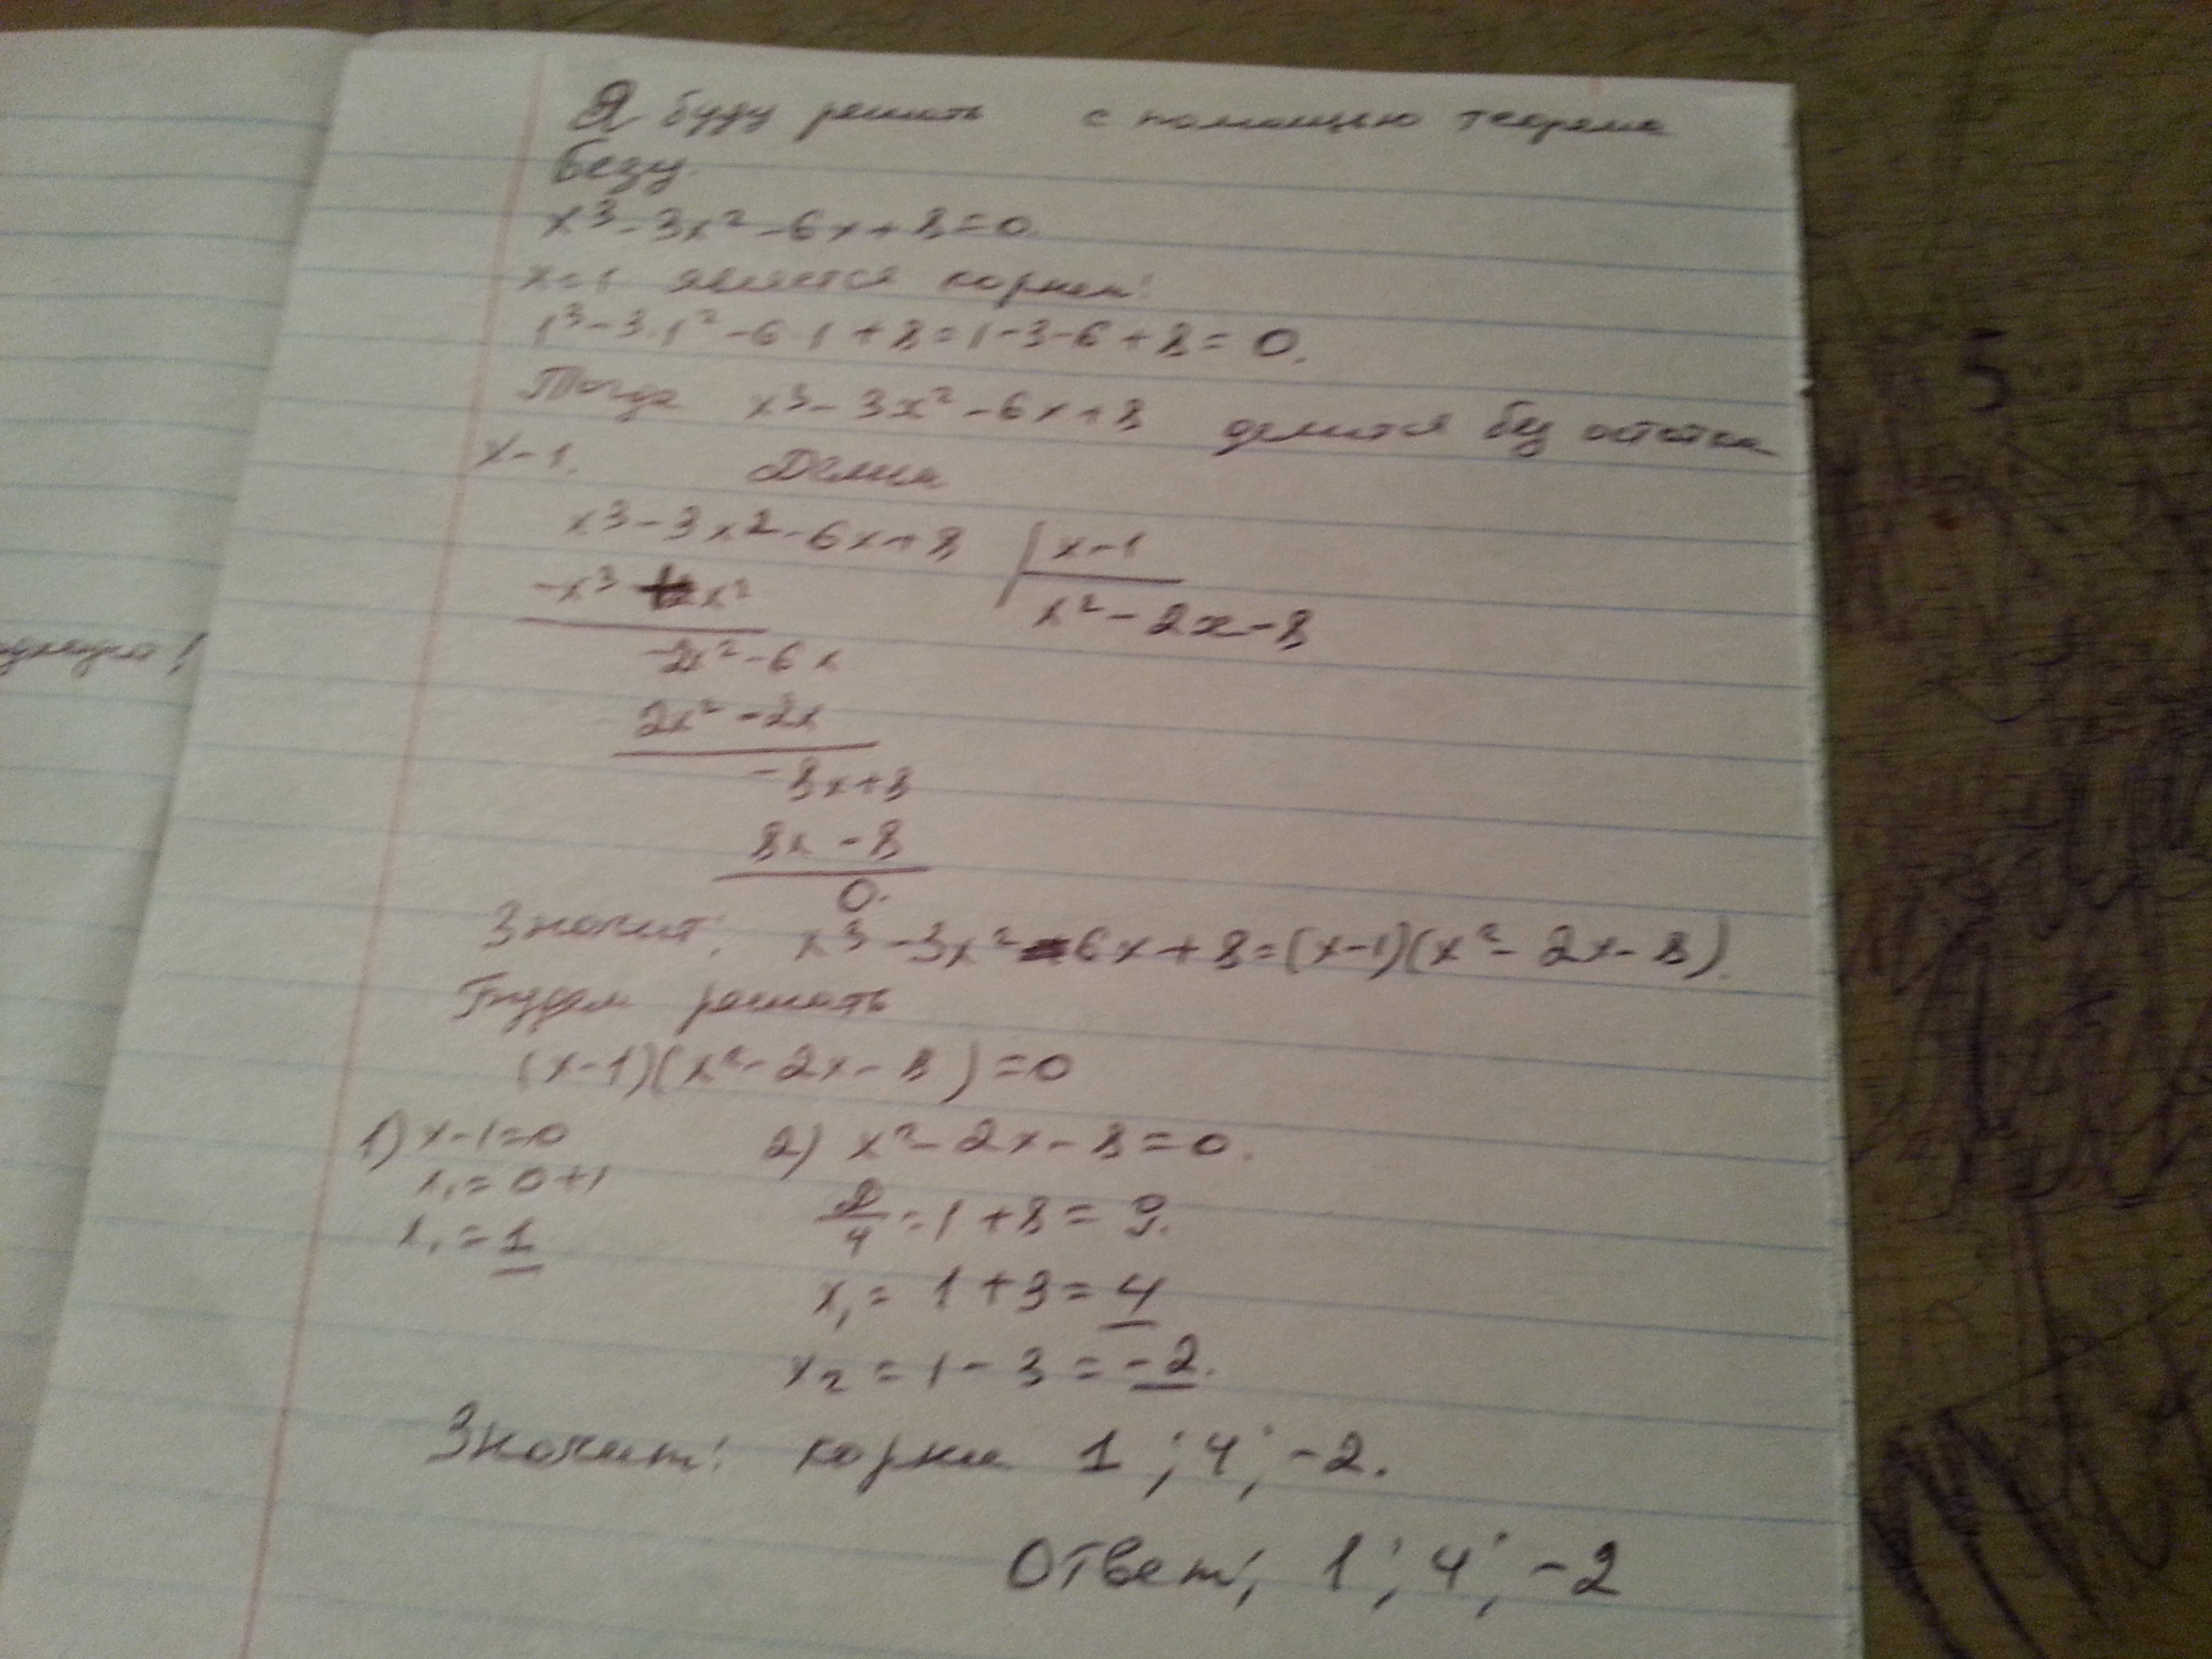 Я буду решать с помощью теорема
Безу.
x³-3x²-6x+8=0.
x=1 является корнем:
1³-3·1²-6·1+8=1-3-6+8=0.
Тогда x³-3x²-6x+8 делится без остатка
x-1. Делим
x³-3x²-6x+8 | x-1
-x³ x² x²-2x-8
-2x²-6x
2x²-2x
-8x+8
8x-8
0.
Значит: x³-3x²-6x+8=(x-1)(x²-2x-8).
Будем решать
(x-1)(x²-2x-8)=0
1) x-1=0 2) x²-2x-8=0.
x₁=0+1 D/4=1+8=9.
x₁=1 x₁=1+3=4
x₂=1-3=-2.
Значит: корни 1; 4; -2.
Ответ: 1; 4; -2
5